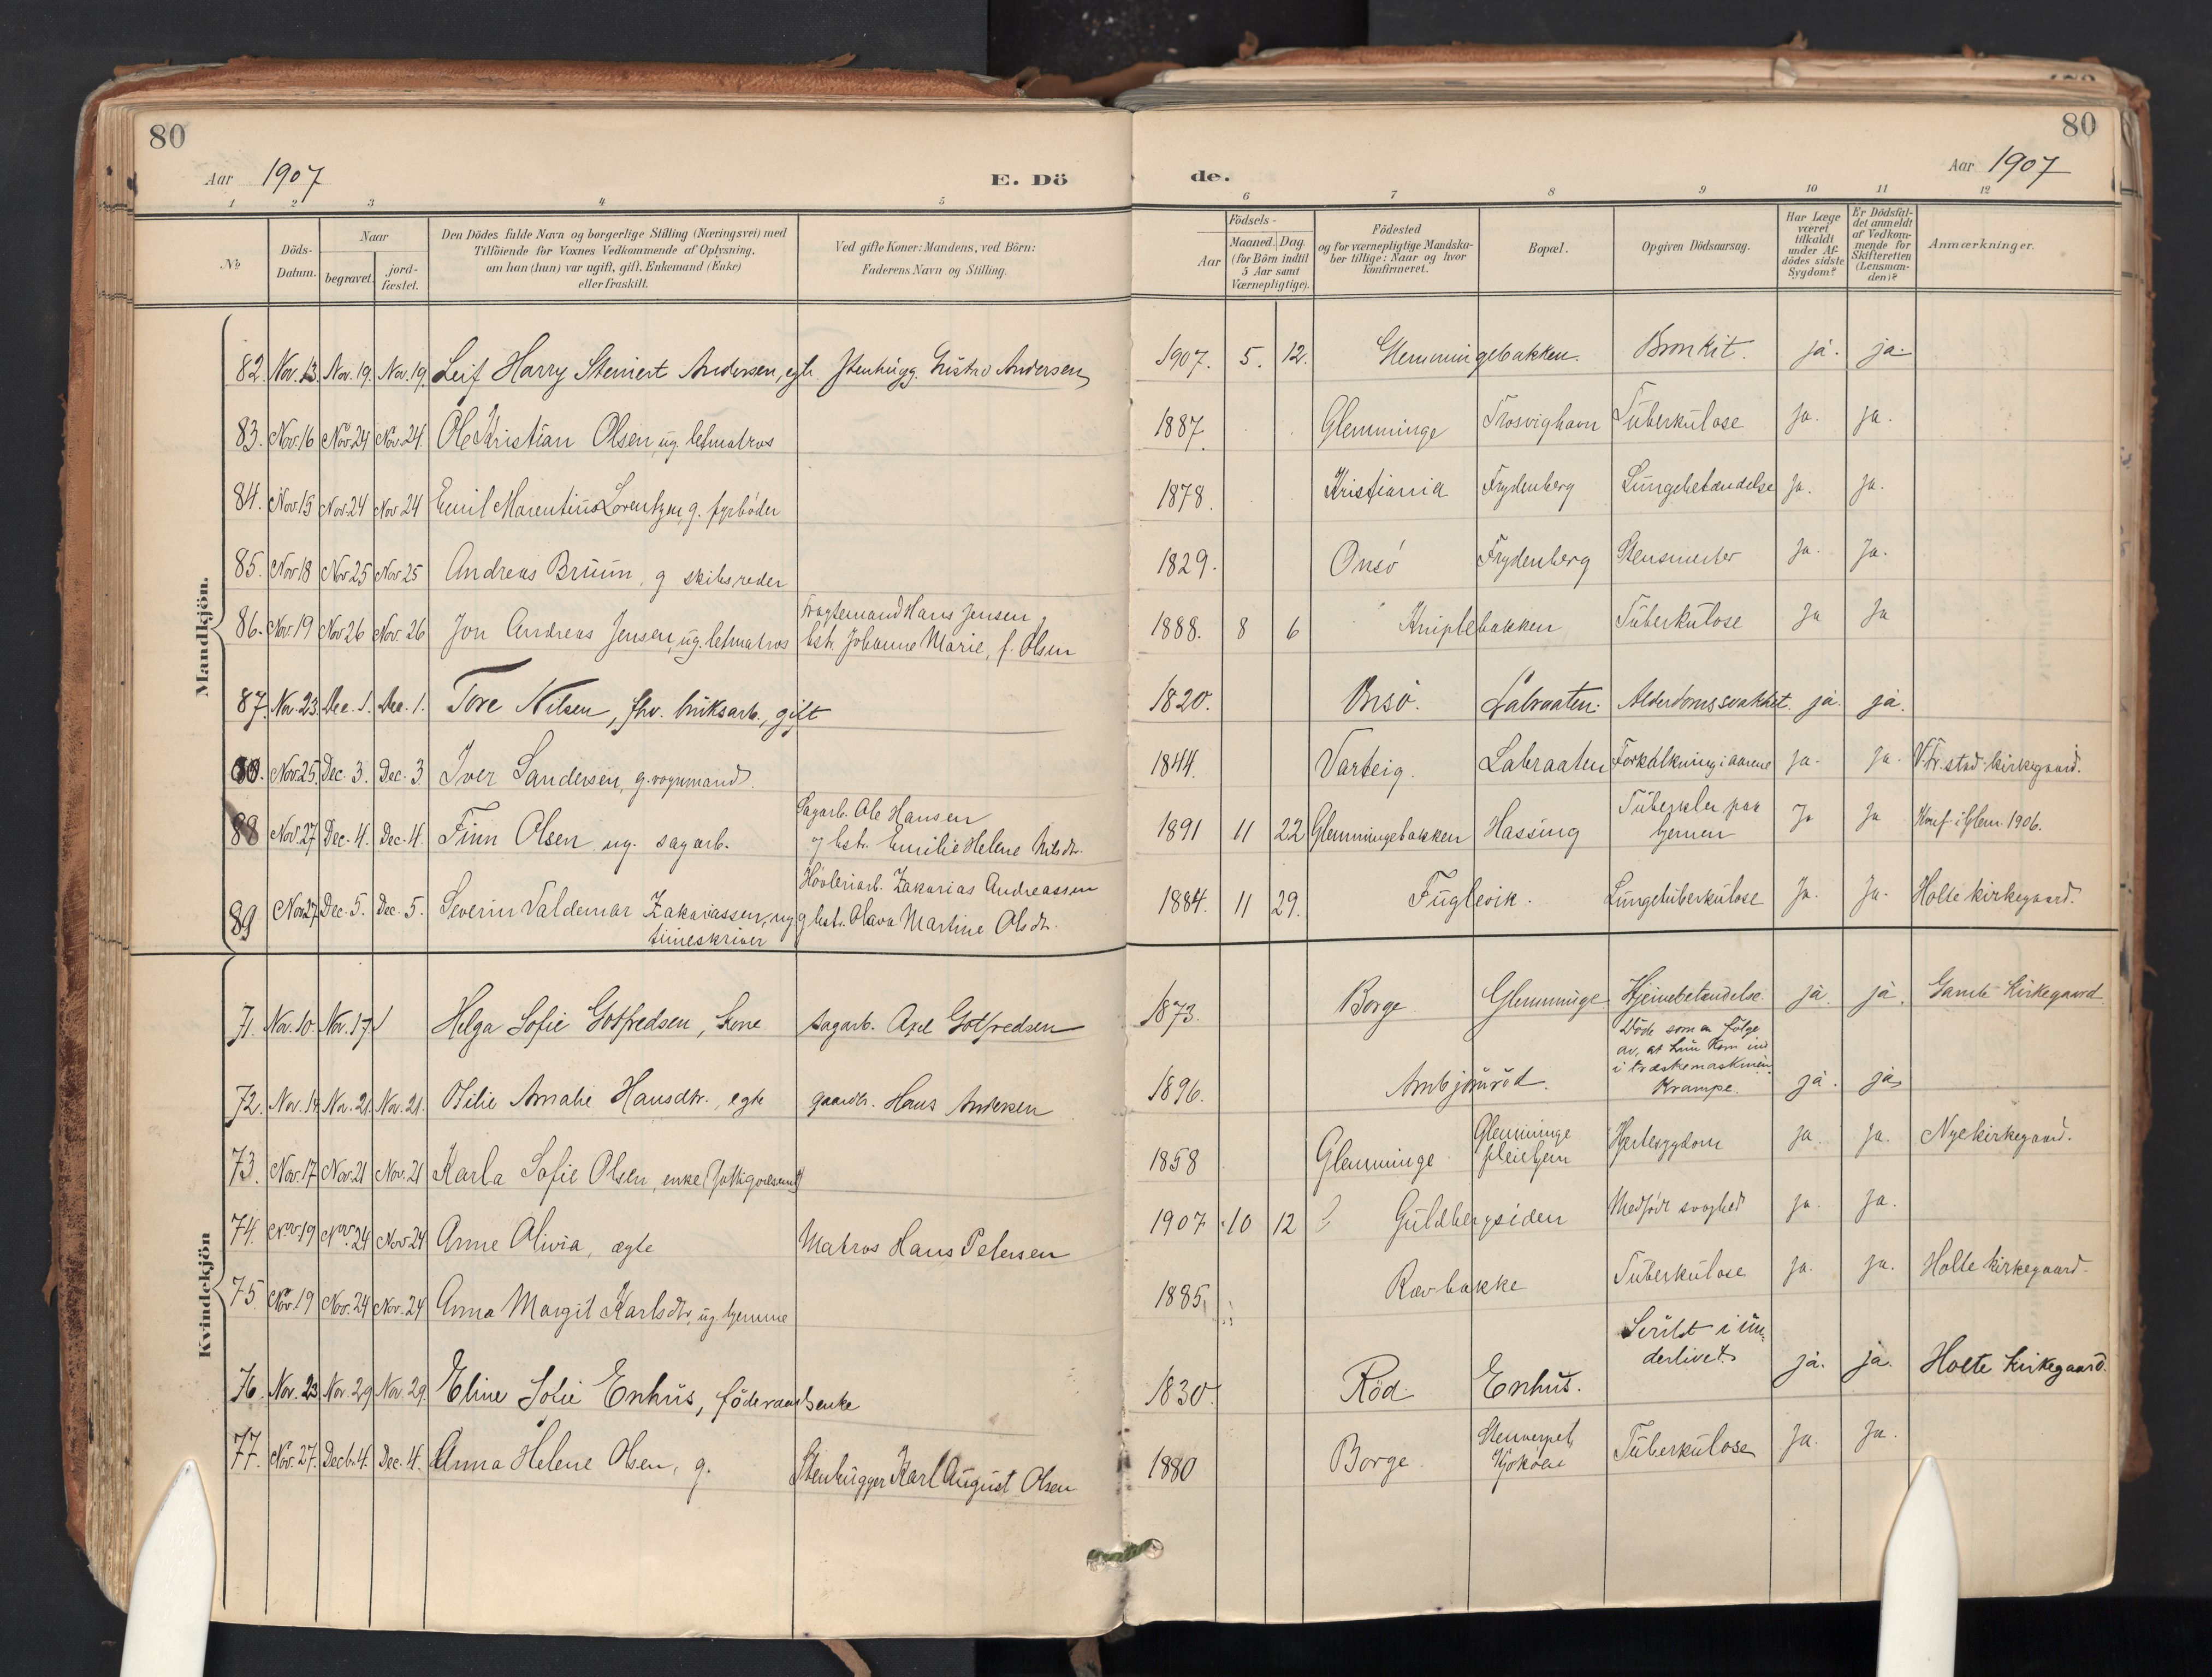 80
80
Aar 1907
E. Dö
de.
Aar 1907
1 2 3 4 5 6 7 8 9 10 11 12
No
Döds-
Datum.
Naar
begravet.
jord-
fæstet.
Den Dödes fulde Navn og borgerlige Stilling (Næringsvei) med
Tilföiende for Voxnes Vedkommende af Oplysning,
om han (hun) var ugift, gift, Enkemand (Enke)
eller fraskilt.
Ved gifte Koner: Mandens, ved Börn:
Faderens Navn og Stilling.
Födsels-
Aar
Maaned. Dag.
(for Börn indtil
5 Aar samt
Værnepligtige).
Födested
og for værnepligtige Mandska-
ber tillige: Naar og hvor
konfirmeret.
Bopæl.
Opgiven Dödsaarsag.
Har Læge
været
tilkaldt
under Af-
dödes sidste
Sygdom?
Er Dödsfal-
det anmeldt
af Vedkom-
mende for
Skifteretten
(Lensman-
den)?
Anmærkninger.
Mandkjön.
82. Nov. 13. Nov. 19. Nov. 19 Leif Harry Steinert Andersen, egte Stenhugg. Gustav Andersen 1907. 5. 12. Glemmingebakken. Bronkit. ja. ja.
83. Nov. 16 Nov. 24 Nov. 24. Ole Kristian Olsen, ug. letmatros 1887. Glemminge Trosvighavn Tuberkulose Ja. ja.
84. Nov 15 Nov. 24 Nov 24 Emil Marentius Lorentzen, g. fyrböder 1878. Kristiania Frydenberg Lungebetændelse Ja. Ja.
85. Nov 18 Nov 25 Nov 25 Andreas Bruun, g skibsreder 1829. Onsö Frydenberg Ja. Ja.
86. Nov. 19 Nov 26 Nov. 26 Jon Andreas Jensen, ug. letmatros
Fragtemand Hans Jensen,
hstr. Johanne Marie, f. Olsen
1888. 8 6 Kniplebakken Tuberkulose Ja Ja
87. Nov. 23. Dec. 1. Dec. 1. Tore Nilsen, fhv. bruksarb., gift 1820. Onsö. Labraaten. Alderdomssvakhet. ja. ja.
88. Nov. 25. Dec. 3. Dec. 3 Iver Sandersen, g. vognmand. 1844. Varteig. Labraaten Forkalkning i aarene Ja. Ja. V. Fr.stad kirkegaard.
88 Nov. 27 Dec. 4. Dec. 4. Finn Olsen ug. sagarb.
Sagarb. Ole Hansen
og hstr. Emilie Helene Nilsdtr.
1891 11 22 Glemmingebakken Hassing
Tuberkler paa
hjernen
Ja Ja Konf. i Glem. 1906.
89 Nov. 27 Dec. 5. Dec. 5. Severin Valdemar Zakariassen, ug
timeskriver
Høvleriarb. Zakarias Andreassen
og hstr. Olava Martine Olsdtr.
1884. 11 29. Fuglevik. Lungetuberkulose Ja. Ja. Holte kirkegaard.
Kvindekjön
71. Nov. 10. Nov. 17. Helga Sofie Gotfredsen, kone sagarb. Axel Gotfredsen 1873. Borge Glemminge Hjernebetændelse. ja. ja. Gamle kirkegaard
72. Nov. 14. Nov. 21. Nov. 21. Otilie Amalie Hansdtr., egte gaardbr. Hans Andersen 1896. Ambjörnröd.
Döde som en følge
av, at hun kom ind
i træskemaskinen.
Krampe.
ja. ja
73. Nov. 17 Nov. 21 Nov. 21 Karla Sofie Olsen, enke (fattigvæsenet) 1858 Glemminge
Glemminge
pleiehjem
Hjertesygdom Ja. Ja. Nye kirkegaard.
74. Nov. 19 Nov. 24 Nov 24 Anne Olivia, ægte Matros Hans Petersen 1907 10 12 Guldbergsiden Medfödt svaghed Ja. Ja.
75. Nov. 19 Nov. 24 Nov. 24 Anna Margit Karlsdtr, ug. hjemme 1885. Rævbakke Tuberkulose Ja. Ja. Holte kirkegaard.
76. Nov. 23 Nov. 29 Nov. 29. Eline Sofie Enhus, föderaadsenke 1830. Röd. Enhus.
Svulst i un-
derlivet.
ja. ja. Holte kirkegaard.
77. Nov. 27. Decb. 4. Dec. 4. Anna Helene Olsen, g. Stenhugger Karl August Olsen 1880 Borge
Kjøkøen
Tuberkulose Ja. Ja.